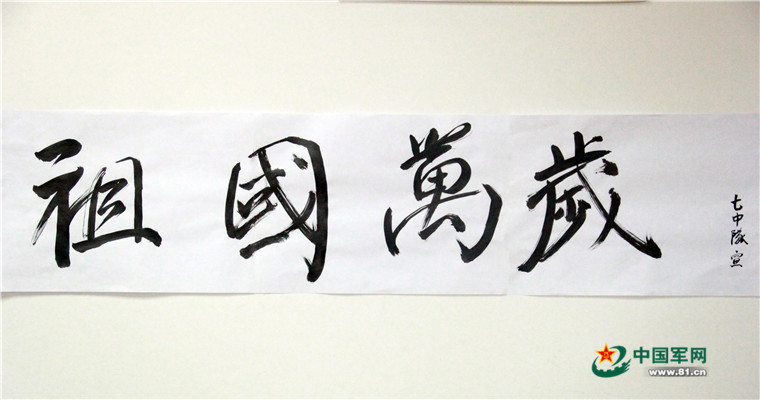 祖國萬歲
七中隊宣
中国军网
www.81.cn